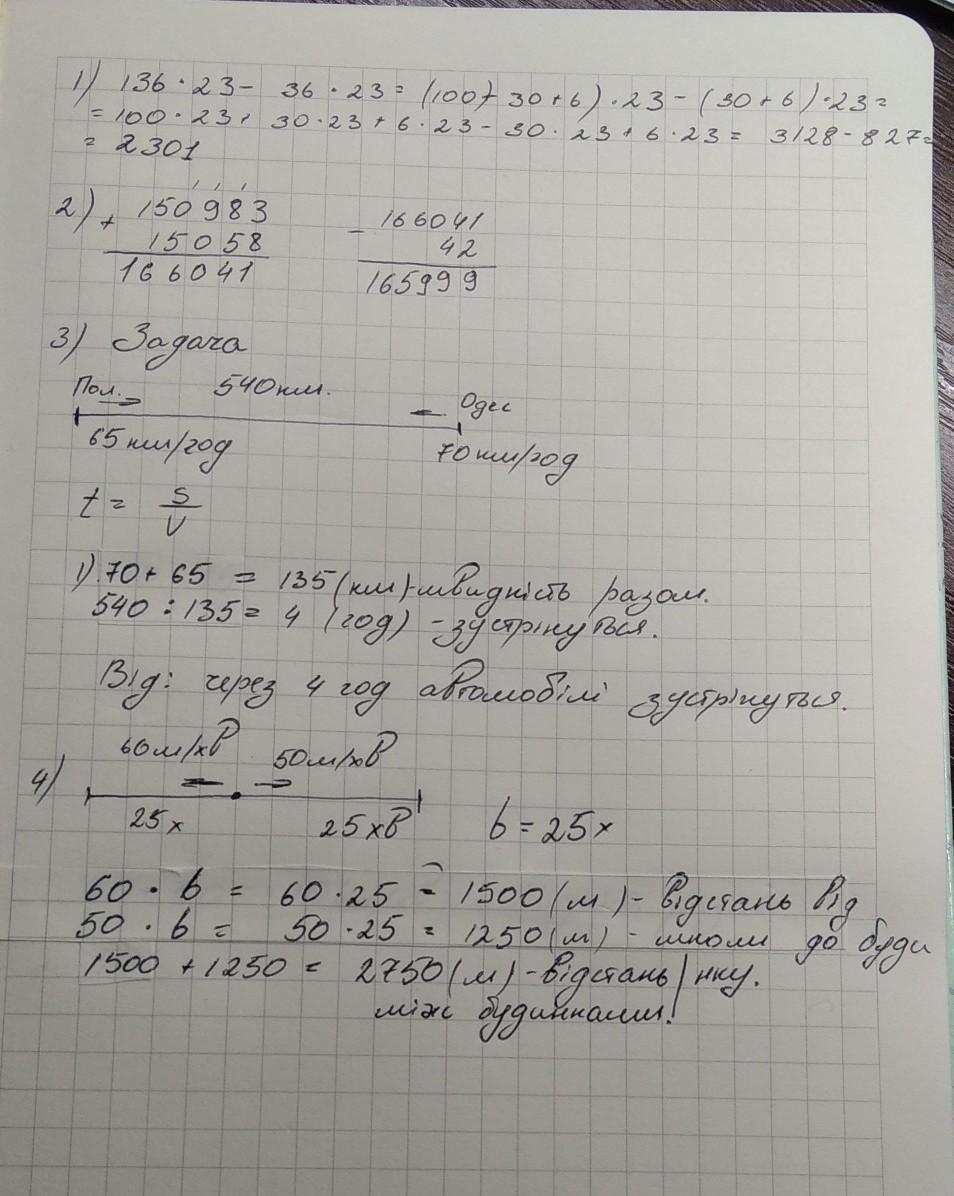 1) 136 · 23 - 36 · 23 = (100 + 30 + 6) · 23 - (30 + 6) · 23 =
= 100 · 23 + 30 · 23 + 6 · 23 - 30 · 23 + 6 · 23 = 3128 - 827 =
= 2301
2) + 150983 - 166041
15058 42
166041 165999
3) Задача
Пол. 540 км. Одес
65 км/год 70 км/год
t = S/V
1) 70 + 65 = 135 (км) - швидкість разом.
540 : 135 = 4 (год) - зустрінуться.
Від: через 4 год автомобілі зустрінуться.
4) 60 м/хв 50 м/хв
25 х 25 хв b = 25 х
60 · b = 60 · 25 = 1500 (м) - відстань від
50 · b = 50 · 25 = 1250 (м) - школи до буди
1500 + 1250 = 2750 (м) - відстань / нку.
між будинками.